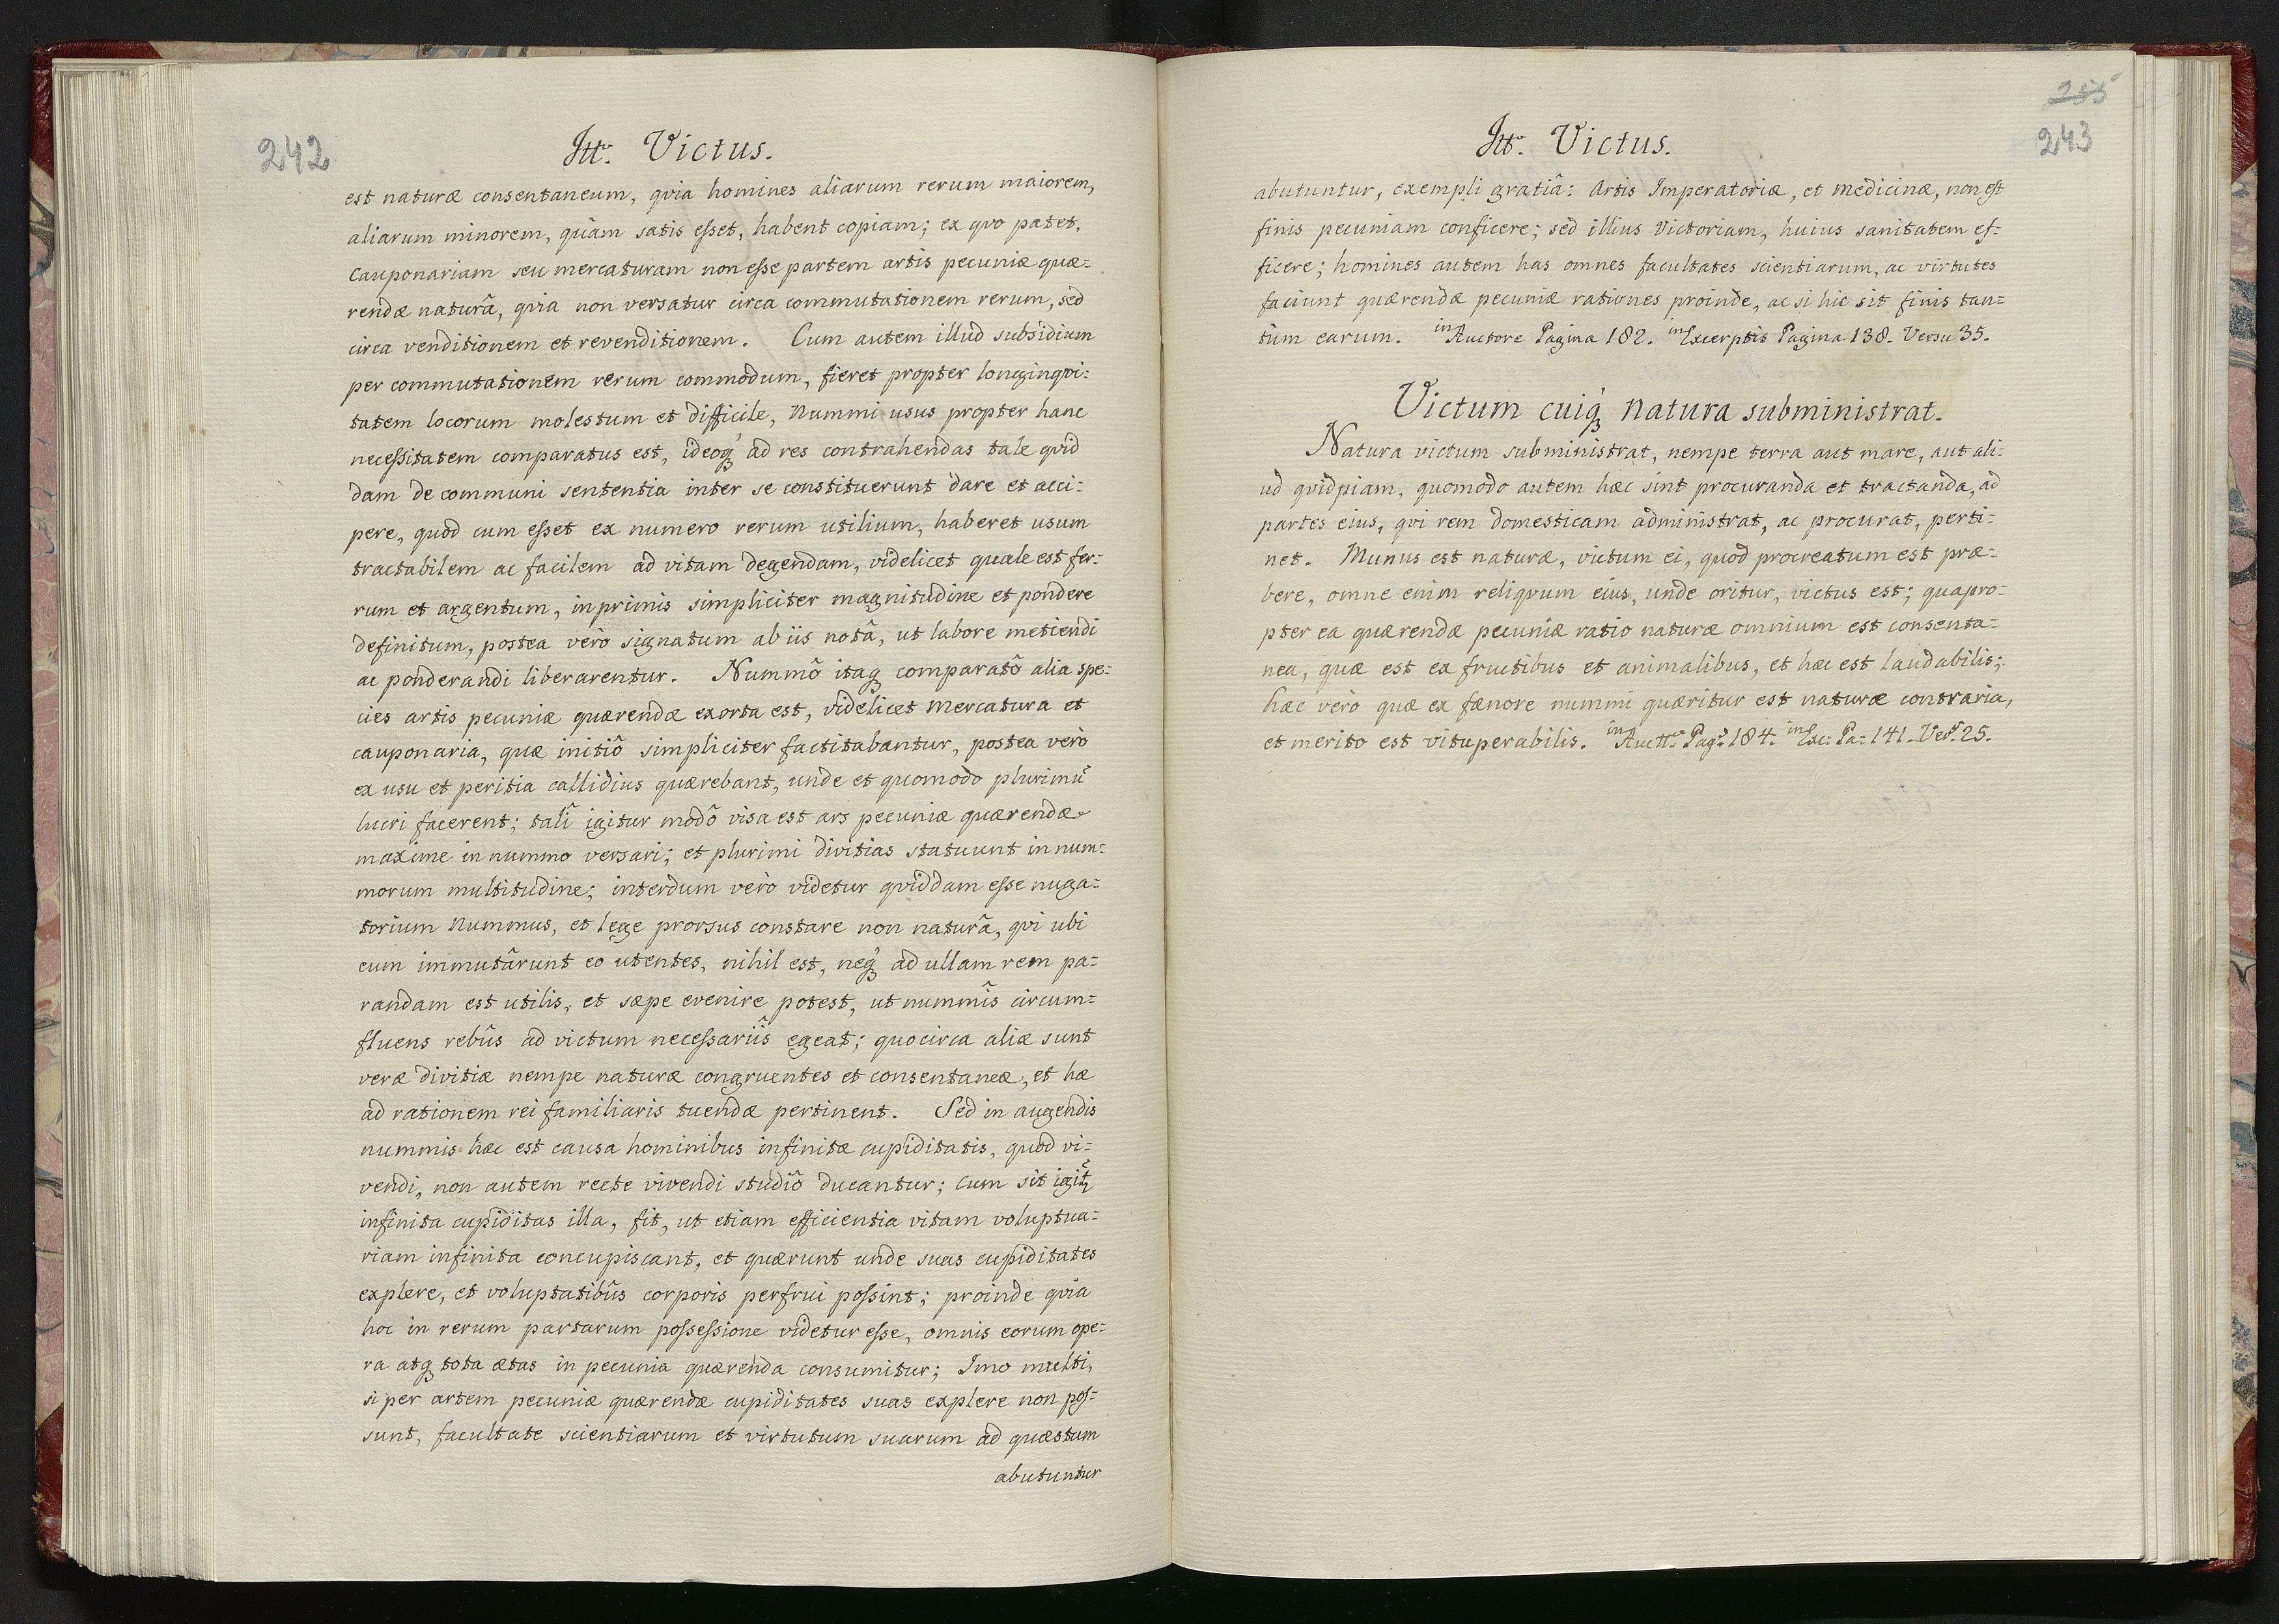 242
Itt. Victus.
est naturæ consentaneum, qvia homines aliarum rerum maiorem,
aliarum minorem, quàm satis esset, habent copiam; ex qvo patet,
cauponariam seu mercaturam non esse partem artis pecuniæ quæ=
rendæ naturâ, qvia non versatur circa commutationem rerum, sed
circa venditionem et revenditionem. Cum autem illud subsidium
per commutationem rerum commodum, fieret propter longinqvi=
tatem locorum molestum et difficile, Nummi usus propter hanc
necessitatem comparatus est, ideoq́ꝫ ad res contrahendas tale qvid
dam de communi sententia inter se constituerunt dare et acci=
pere, quod cum esset ex numero rerum utilium, haberet usum
tractabilem ac facilem ad vitam degendam, videlicet quale est fer=
rum et argentum, inprimis simpliciter magnitudine et pondere
definitum, postea verò signatum ab iis notâ, ut labore metiendi
ac ponderandi liberarentur. Nummô itaqꝫ comparatô alia spe=
cies artis pecuniæ quærendæ exorta est, videlicet Mercatura et
cauponaria, quæ initiô simpliciter factitabantur, postea verò
ex usu et peritia callidius quærebant, unde et quomodo plurimũ
lucri facerent; talî igitur modô visa est ars pecuniæ quærendæ
maxime in nummo versari; et plurimi divitias statuunt in num=
morum multitudine; interdum verò videtur qviddam esse nuga=
torium Nummus, et lege prorsus constare non naturâ, qvi ubi
eum immutârunt eo utentes, nihil est, neq́ꝫ ad ullam rem pa=
randam est utilis, et sæpe evenire potest, ut nummîs circum=
fluens rebûs ad victum necessariîs egeat; quocirca aliæ sunt
veræ divitiæ nempe naturæ congruentes et consentaneæ, et hæ
ad rationem rei familiaris tuendæ pertinent. Sed in augendis
nummis hæc est causa hominibus infinitæ cupiditatis, quod vi=
vendi, non autem recte vivendi studiô ducantur; Cum sit igit̃
infinita cupiditas illa, fit, ut etiam efficientia vitam voluptua=
riam infinita concupiscant, et quærunt unde suas cupiditates
explere, et voluptatibûs corporis perfrui possint; proinde qvia
hoc in rerum partarum possessione videtur esse, omnis eorum ope=
ra atqꝫ tota ætas in pecunia quærenda consumitur; Imo multi,
si per artem pecuniæ quærendæ cupiditates suas explere non pos=
sunt, facultate scientiarum et virtutum suarum ad quæstum
abutuntur
255
243
Itt. Victus.
abutuntur, exempli gratiâ: Artis Imperatoriæ, et Medicinæ, non est
finis pecuniam conficere; sed illius Victoriam, huius sanitatem ef=
ficere; homines autem has omnes facultates scientiarum, ac virtutes
faciunt quærendæ pecuniæ rationes proinde, ac si hic sit finis tan=
tùm earum. in Auctore Pagina 182. in Excerptis Pagina 138. Versu 35.
Victum cuiq́ꝫ Natura subministrat.
Natura victum subministrat, nempe terra aut mare, aut ali=
ud qvidpiam, quomodo autem hæc sint procuranda et tractanda, ad
partes eius, qvi rem domesticam administrat, ac procurat, perti=
net. Munus est naturæ, victum ei, quod procreatum est præ=
bere, omne enim reliqvum eius, unde oritur, victus est; quapro=
pter ea quærendæ pecuniæ ratio naturæ omnium est consenta=
nea, quæ est ex fructibus et animalibus, et hæc est laudabilis;
hæc verò quæ ex fænore nummi quæritur est naturæ contraria,
et merito est vituperabilis. in Auctt. Pag. 184. in Exc: Pa: 141. Ver. 25.